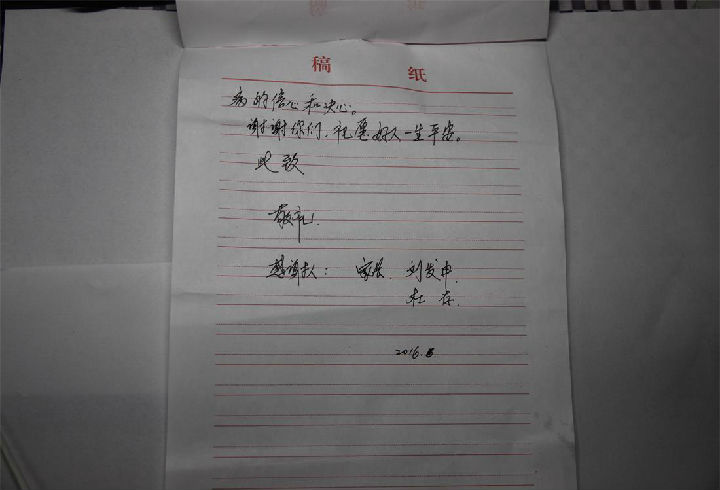 稿 纸
病的信心和决心。
谢谢你们,祝愿好人一生平安。
此致
敬礼!
感谢人: 家长 刘发申
杜存
2016.